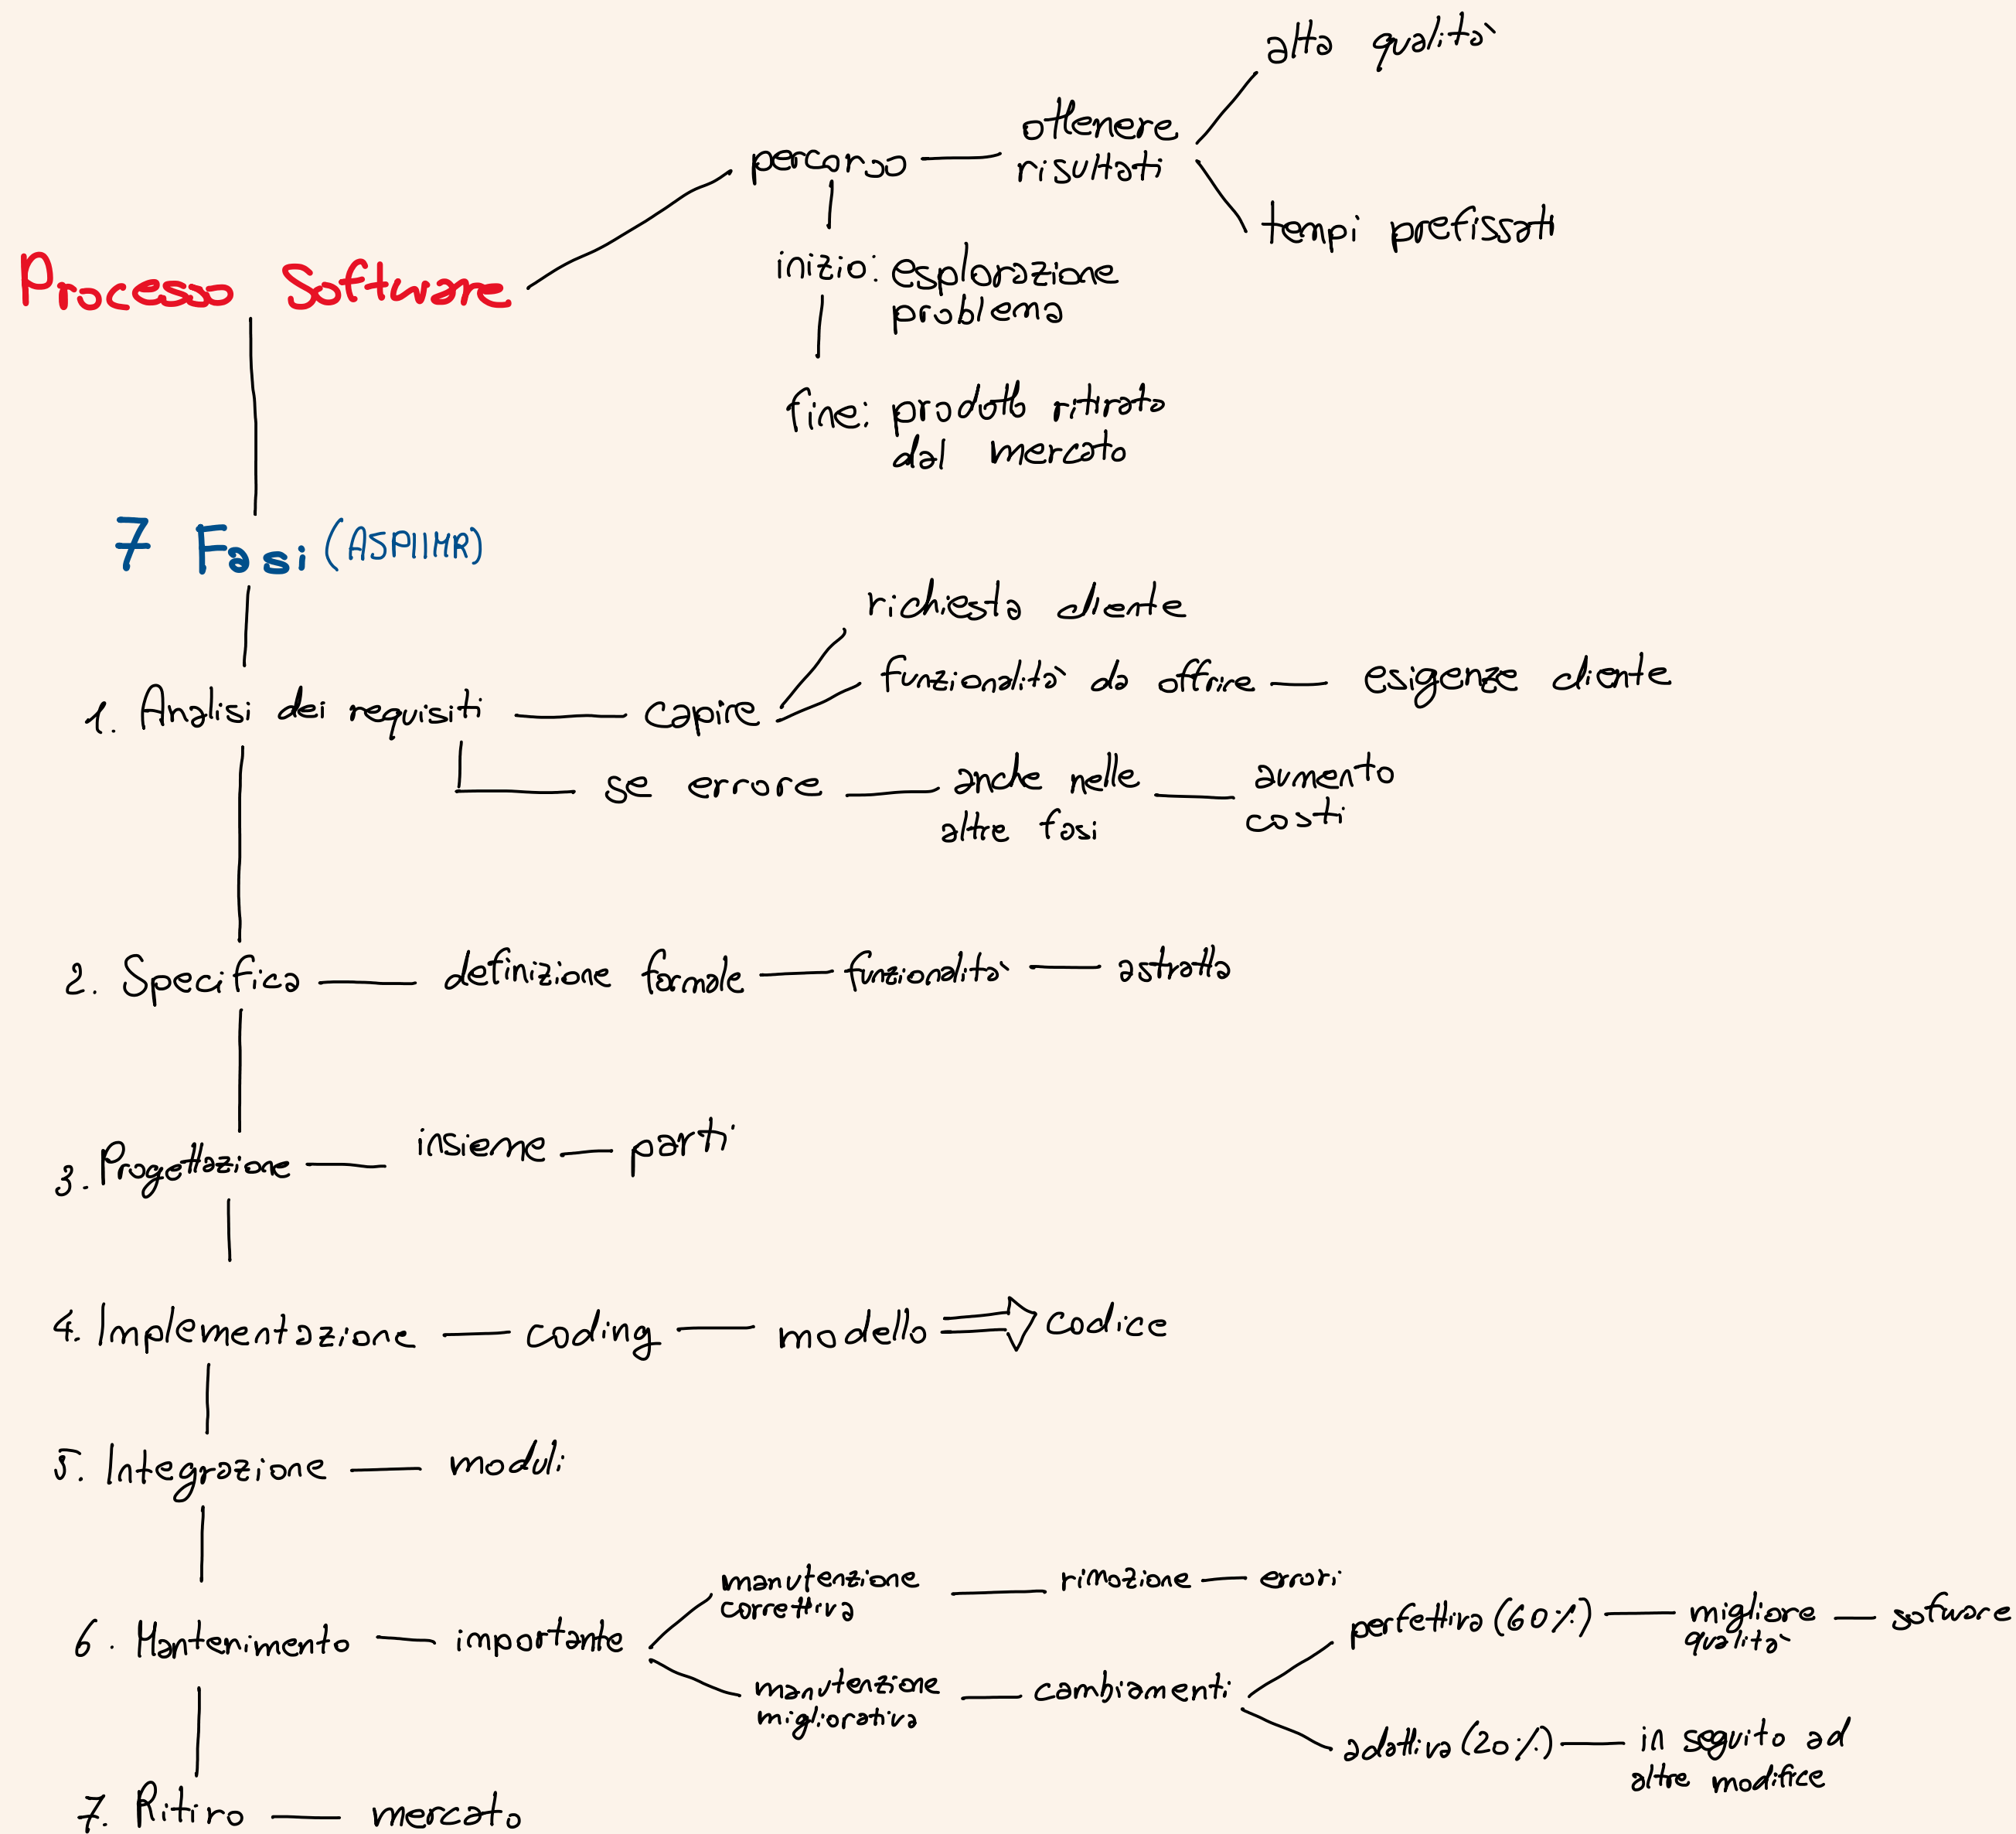 Processo Software
percorso
ottenere
risultati
alta qualità
tempi prefissati
inizio: esplorazione
problema
fine: prodotto ritirato
dal mercato
7 Fasi (ASPIIMR)
1. Analisi dei requisiti
capire
richiesta cliente
funzionalità da offrire
esigenze cliente
se errore
anche nelle
altre fasi
aumento
costi
2. Specifica
definizione formale
funzionalità
astratta
3. Progettazione
insieme
parti
4. Implementazione
coding
modello
codice
5. Integrazione
moduli
6. Mantenimento
importante
manutenzione
correttiva
rimozione
errori
manutenzione
migliorativa
cambiamenti
perfettiva (60%)
migliore
qualità
sofware
adattiva (20%)
in seguito ad
altre modifice
7. Ritiro
mercato